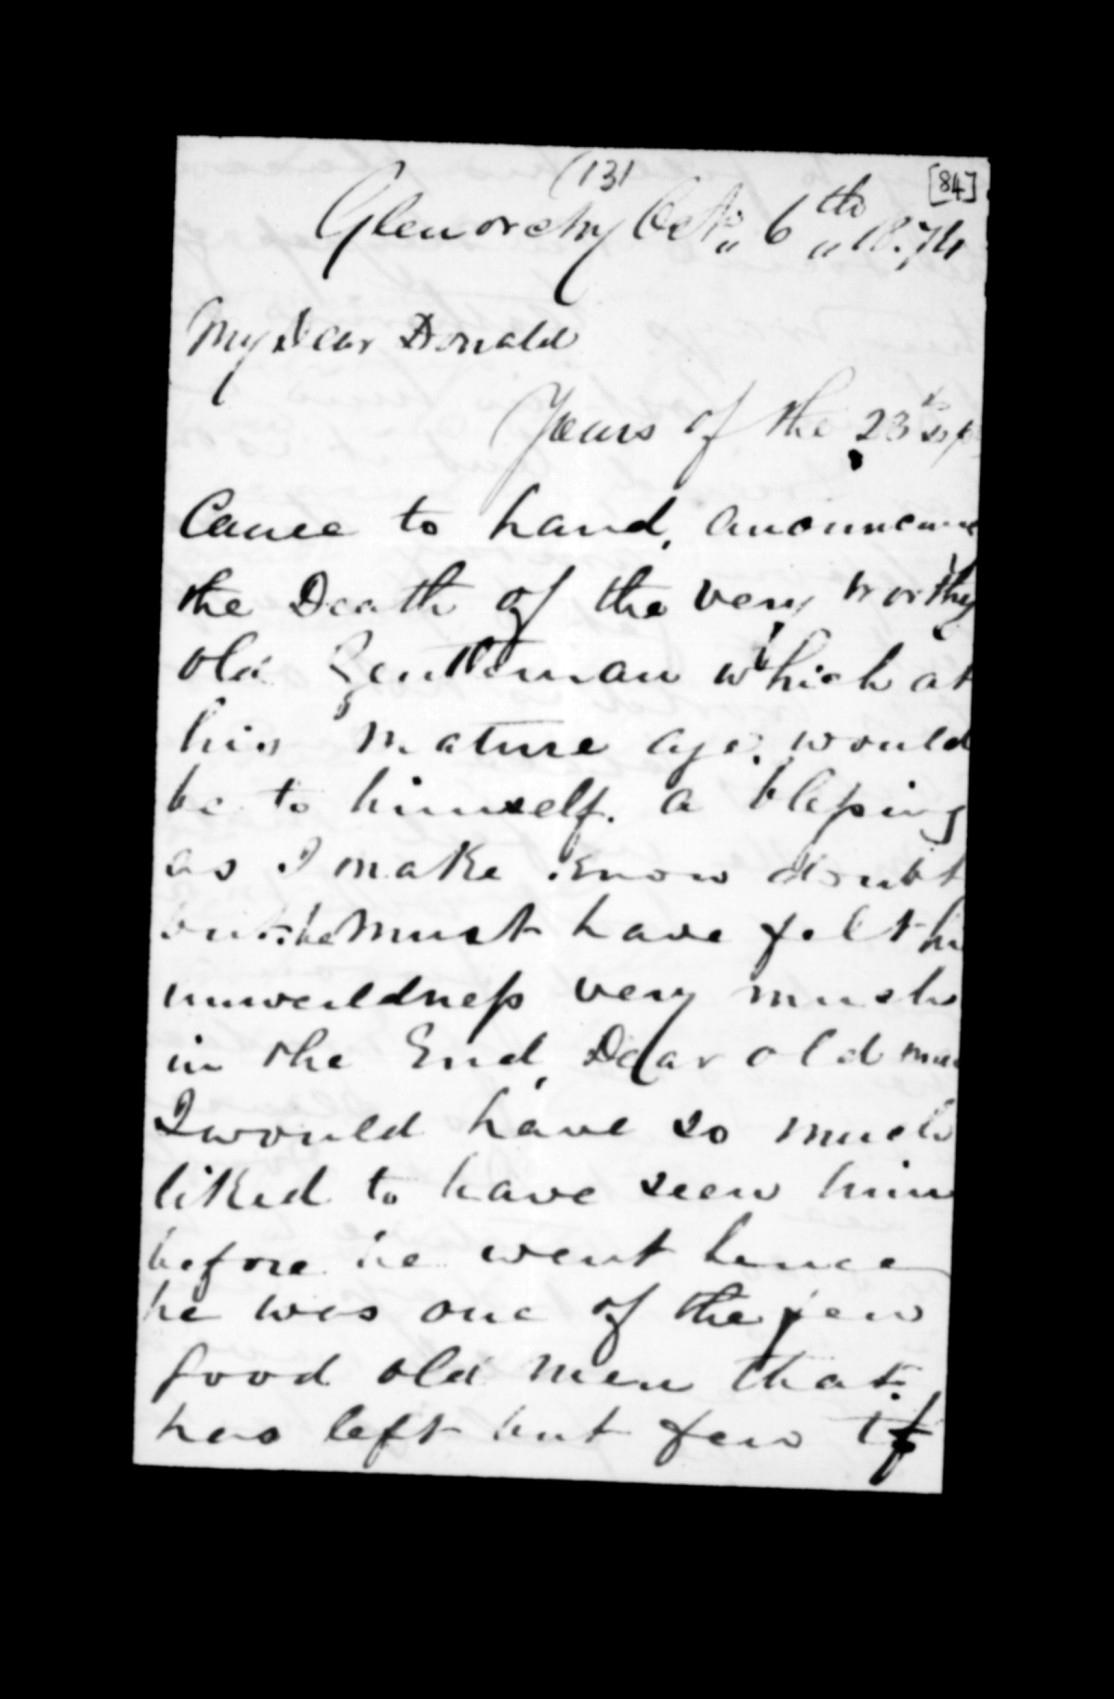 (131
[84]
Glenorchy Oct. 6th 1874
My Dear Donald
Yours of the 23rd Sep
Came to hand, anouncing
the Death of the very worthy
old Gentleman which at
his mature age, would
be to himself. a blessing
as I make know doubt
but he must have felt his
unweildness very much
in the End, Dear old man
I would have so much
liked to have seen him
before he went hence
he was one of the few
good old men that
has left but few